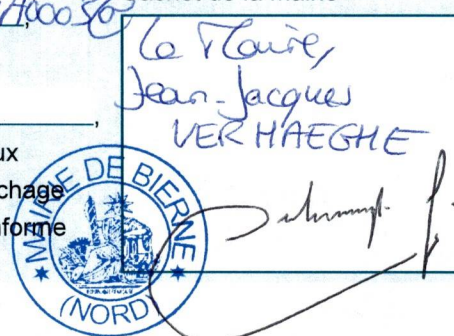 Le Maire,
Jean-Jacques
VERHAEGHE
,
ux
chage
nforme
MAIRIE DE BIERNE
(NORD)